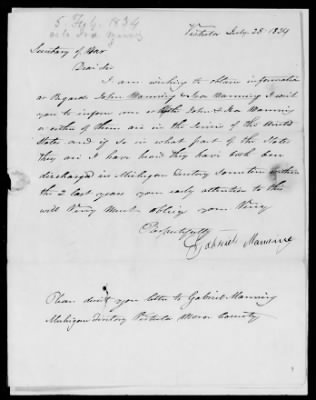 5. Feby. 1834
Vistula July 25 1834
Secretary of War
Dear Sir
I am wishing to obtain information
as Regards John Manning & Ira Manning I wish
you to inform me whether John & Ira Manning
or either of them are in the Service of the United
States and if so in what part of the State
they are I have heard they have both been
discharged in Michigan Territory Sometime within
the 2 last years your early attention to this
will Very Much oblige your Very
Respectfully
Gabriel Manning
Please direct your letter to Gabriel Manning
Michigan Territory Vistula Monroe County